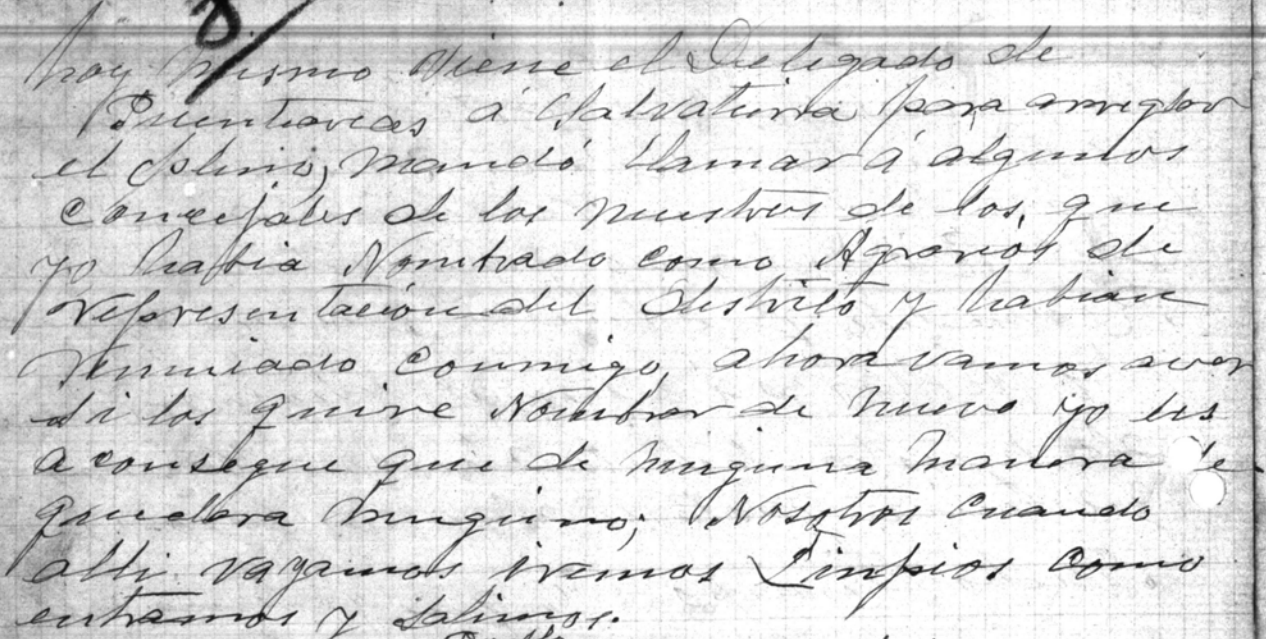 8/
hoy mismo viene el Delegado de
Puenteareas á Salvatierra para arreglar
el pleno, mandó llamar á algunos
Concejales de los nuestros de los, que
yo habia Nombrado como Agrarios de
representación del distrito y habian
renunciado conmigo, ahora vamos aver
si los quire Nombrar de nuevo yo les
aconsegue que de ninguna manera
quedara ninguno; Nosotros cuando
alli vayamos iremos Limpios como
entramos y salimos.